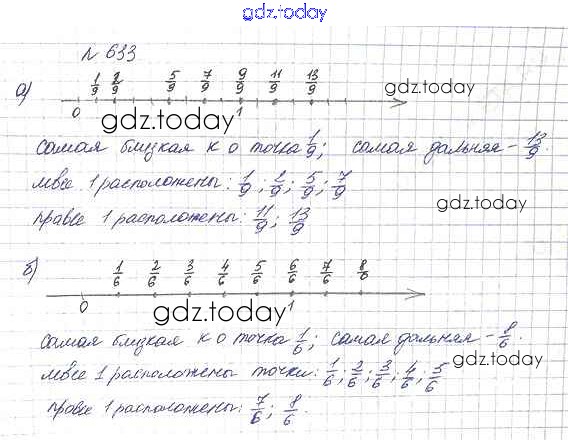 gdz.today
№ 633
а) 1/9 2/9 5/9 7/9 9/9 11/9 13/9
gdz.today
0 1
gdz.today
самая близкая к 0 точка 1/9; самая дальняя - 13/9.
левее 1 расположены: 1/9; 2/9; 5/9; 7/9
gdz.today
правее 1 расположены: 11/9; 13/9
б) 1/6 2/6 3/6 4/6 5/6 6/6 7/6 8/6
0 1
gdz.today
самая близкая к 0 точка 1/6; самая дальняя - 8/6.
gdz.today
левее 1 расположены точки: 1/6; 2/6; 3/6; 4/6; 5/6
правее 1 расположены: 7/6; 8/6.